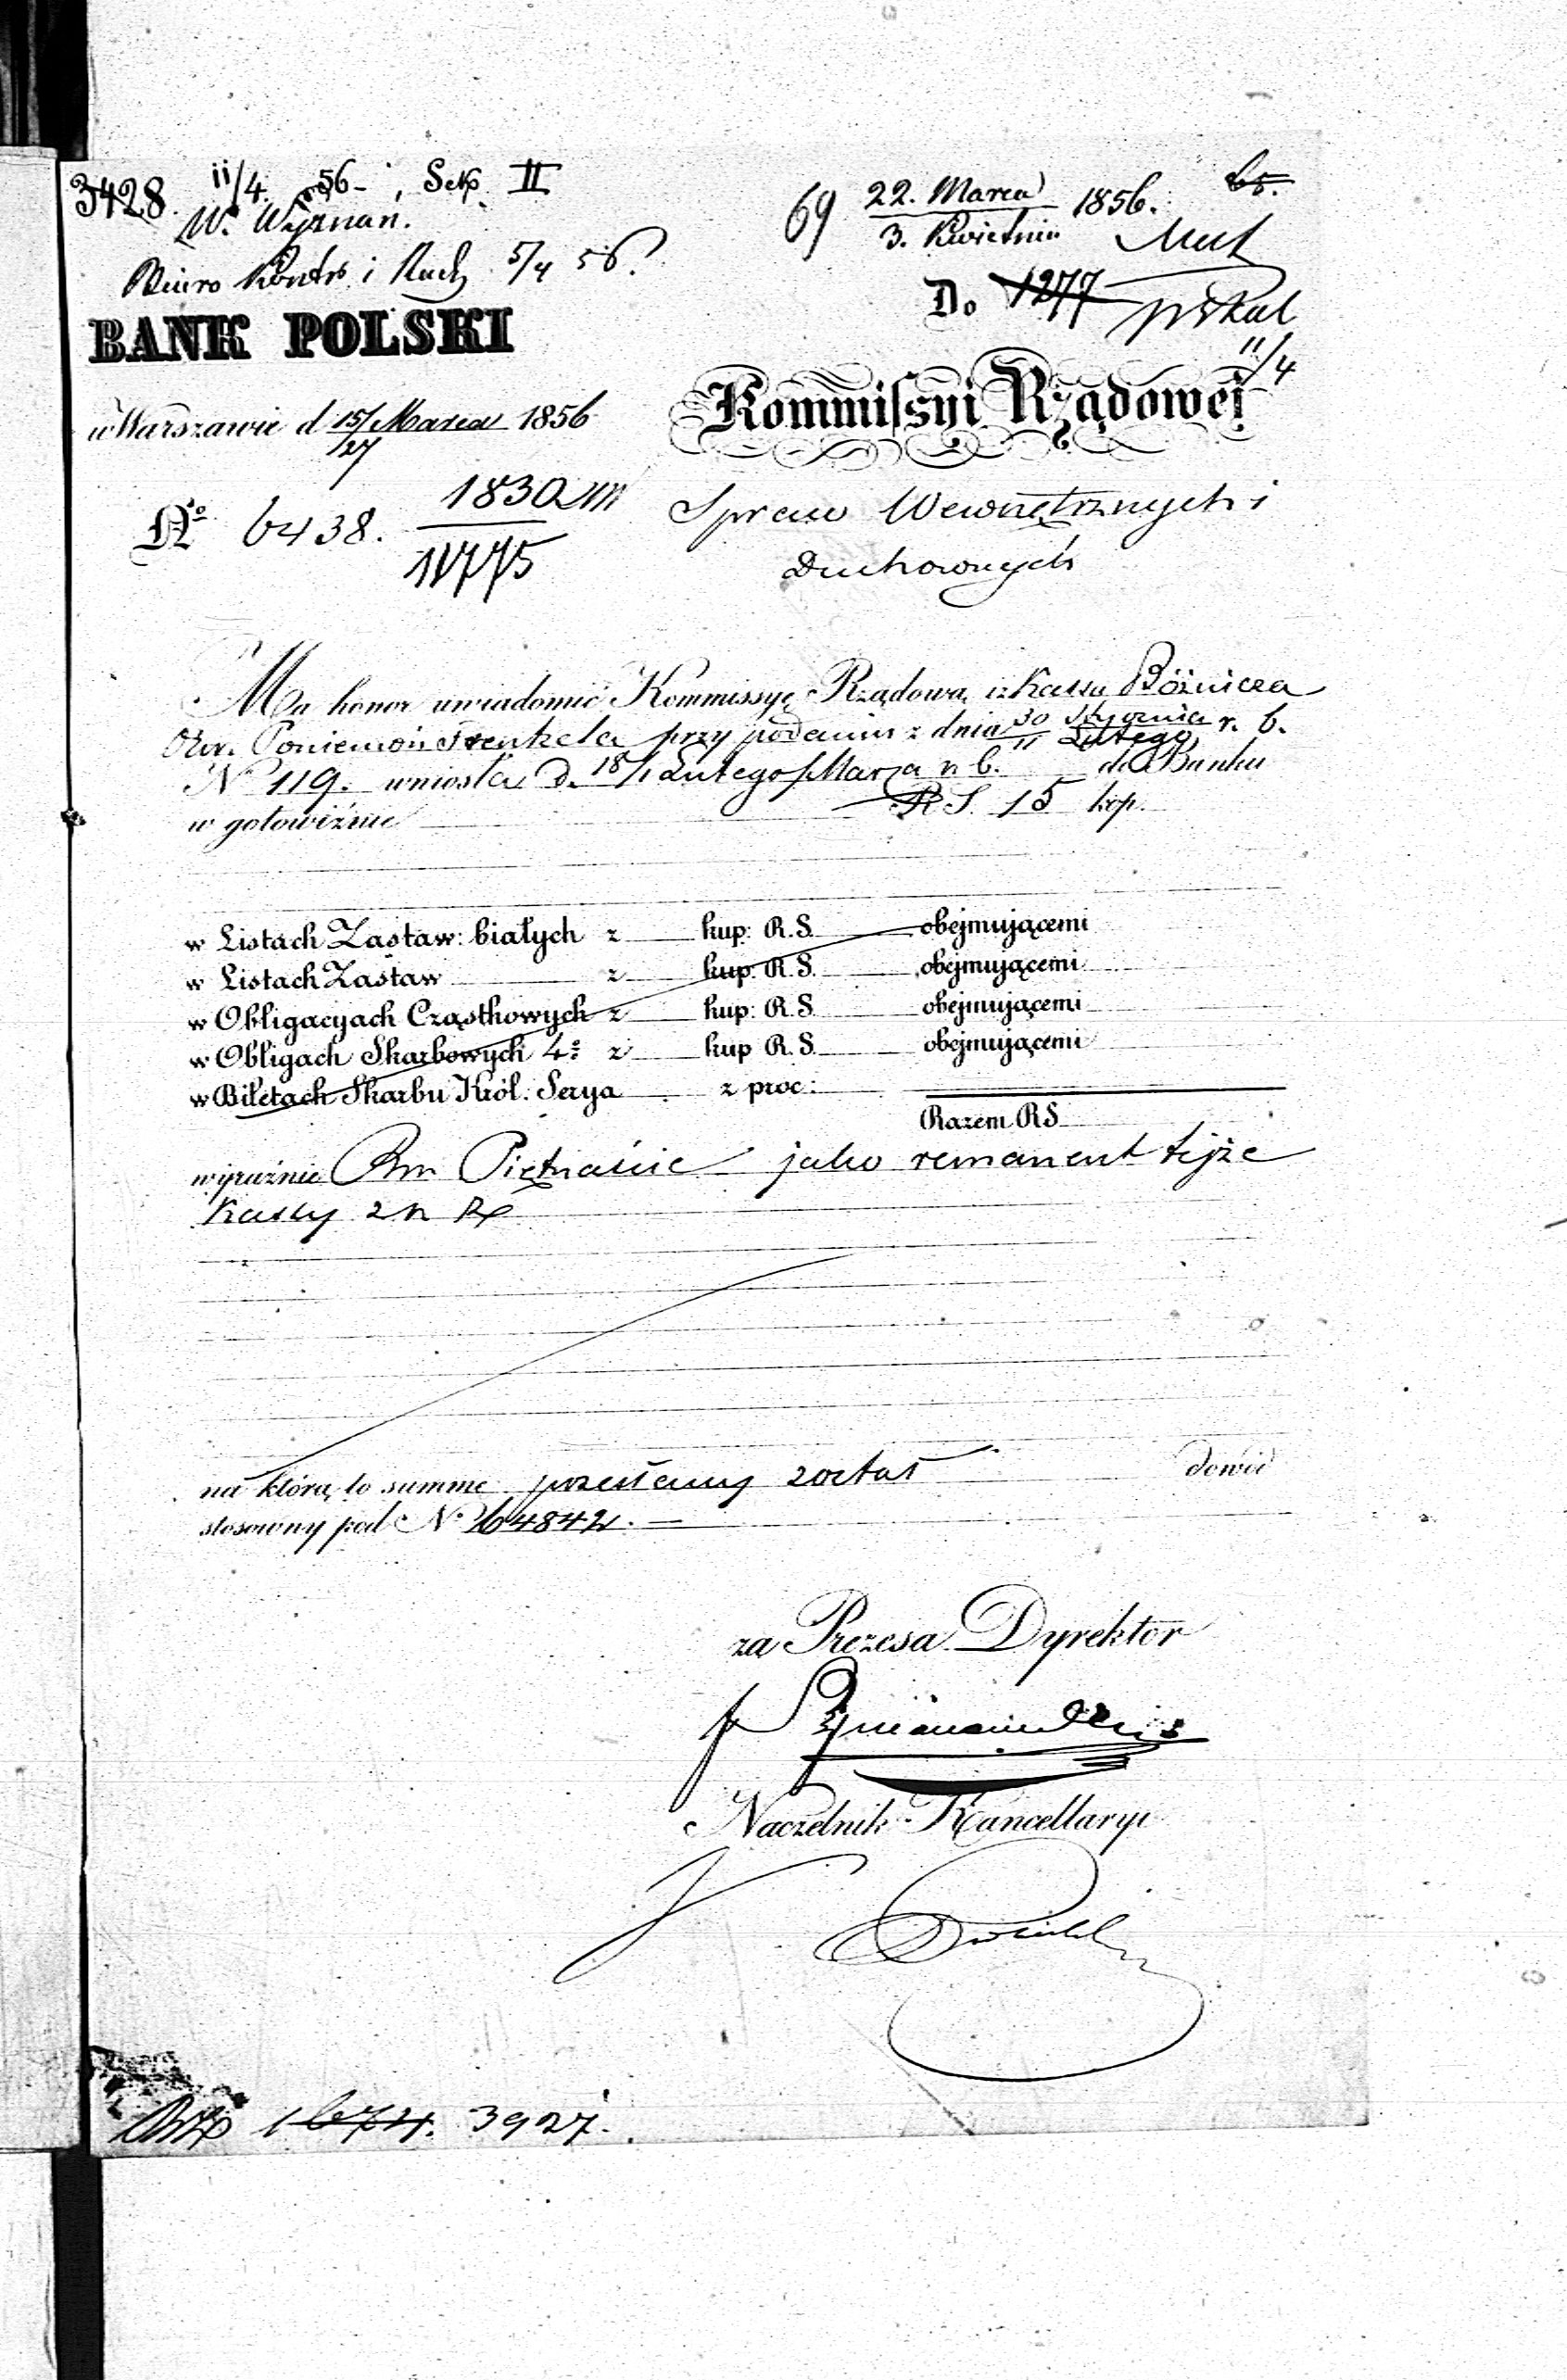 3428. 11/4 56 Sek. II
W. Wyznań.
Biuro Kontr. i Rach. 5/4 56.
69 22. Marca / 3. Kwietnia 1856.
Do 1277
11/4
BANK POLSKI
w Warszawie d 15/27 Marca 1856
Kommissyi Rządowej
No 6438. 1830 / 11775
Spraw Wewnętrznych i
Duchownych
Ma honor uwiadomić Kommissyę Rządową iż Kassa Bóżnicza
Okr. Poniemoń Frenkela przy podaniu z dnia 30 Stycznia / 11 Lutego r. b.
No 119. wniosła d. 18/1 Lutego/Marca r. b. do Banku
w gotowiźnie R.S. 15 kop.
w Listach Zastaw: białych z kup: R.S. obejmującemi
w Listach Zastaw z kup: R.S. obejmującemi
w Obligacyach Cząstkowych z kup: R.S. obejmującemi
w Obligach Skarbowych 4: z kup R.S. obejmującemi
w Biletach Skarbu Król. Serya z proc:
Razem RS
wyraźnie Piętnaście jako remanent tejże
Kassy
na którą to summę przesłany został dowód
stosowny pod No 64842.
za Prezesa Dyrektor
Naczelnik Kancellaryi
1674. 3927.